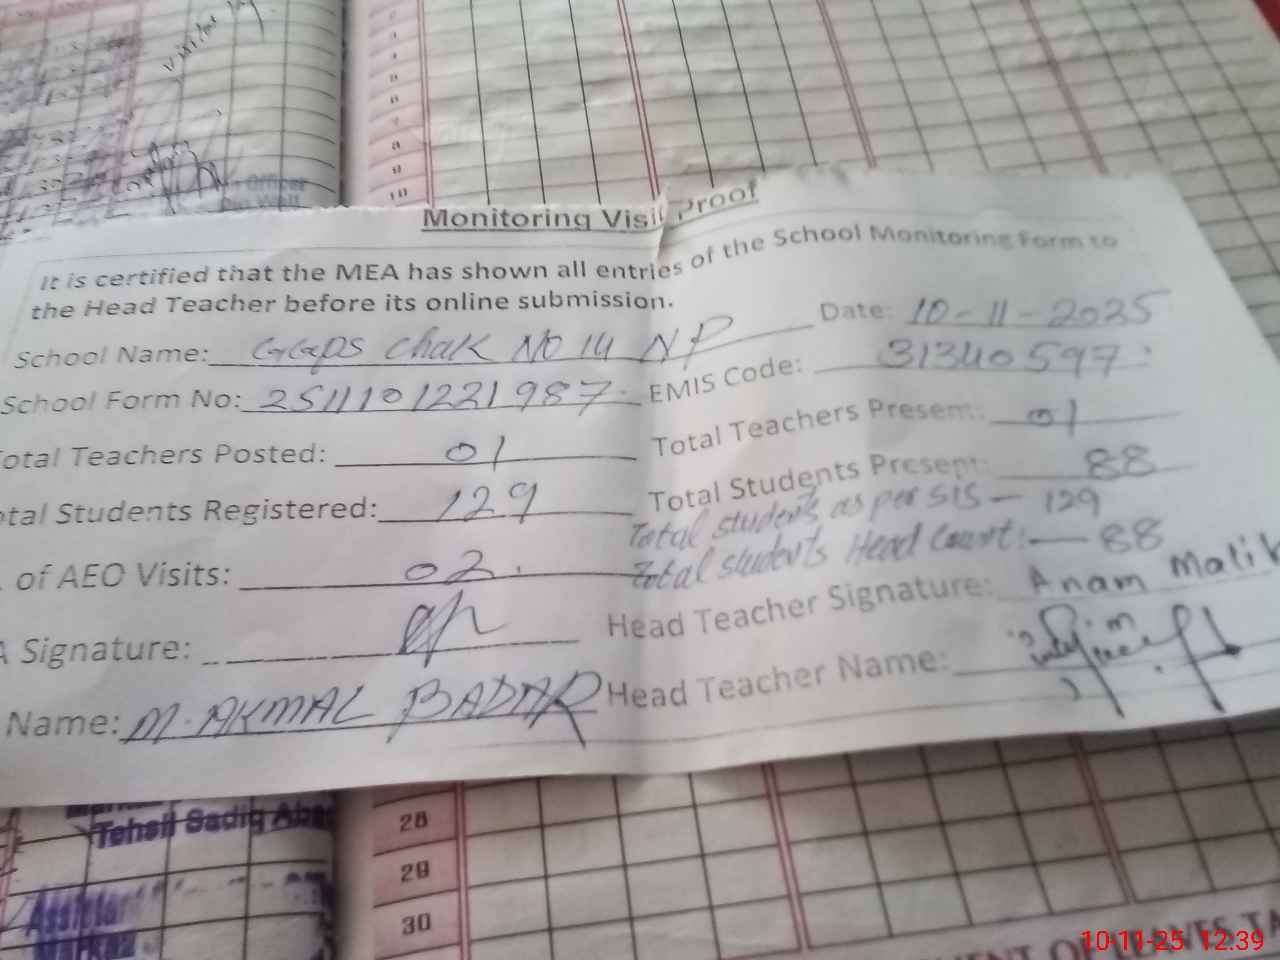 Visitor
10
Monitoring Visit Proof
It is certified that the MEA has shown all entries of the School Monitoring Form to
the Head Teacher before its online submission.
Date: 10-11-2025
School Name: GGPS Chak No 14 NP
EMIS Code: 31340597
School Form No: 2511101221987
Total Teachers Present: 01
otal Teachers Posted: 01
Total Students Present: 88
tal Students Registered: 129
Total students as per SIS — 129
Total students Head Count: — 88
of AEO Visits: 02
Head Teacher Signature: Anam Malik
A Signature:
Head Teacher Name:
Name: M. AKMAL BADAR
Tehsil Sadiq Abad
28
29
30
Markaz
OF LEAVES TA
10-11-25 12:39